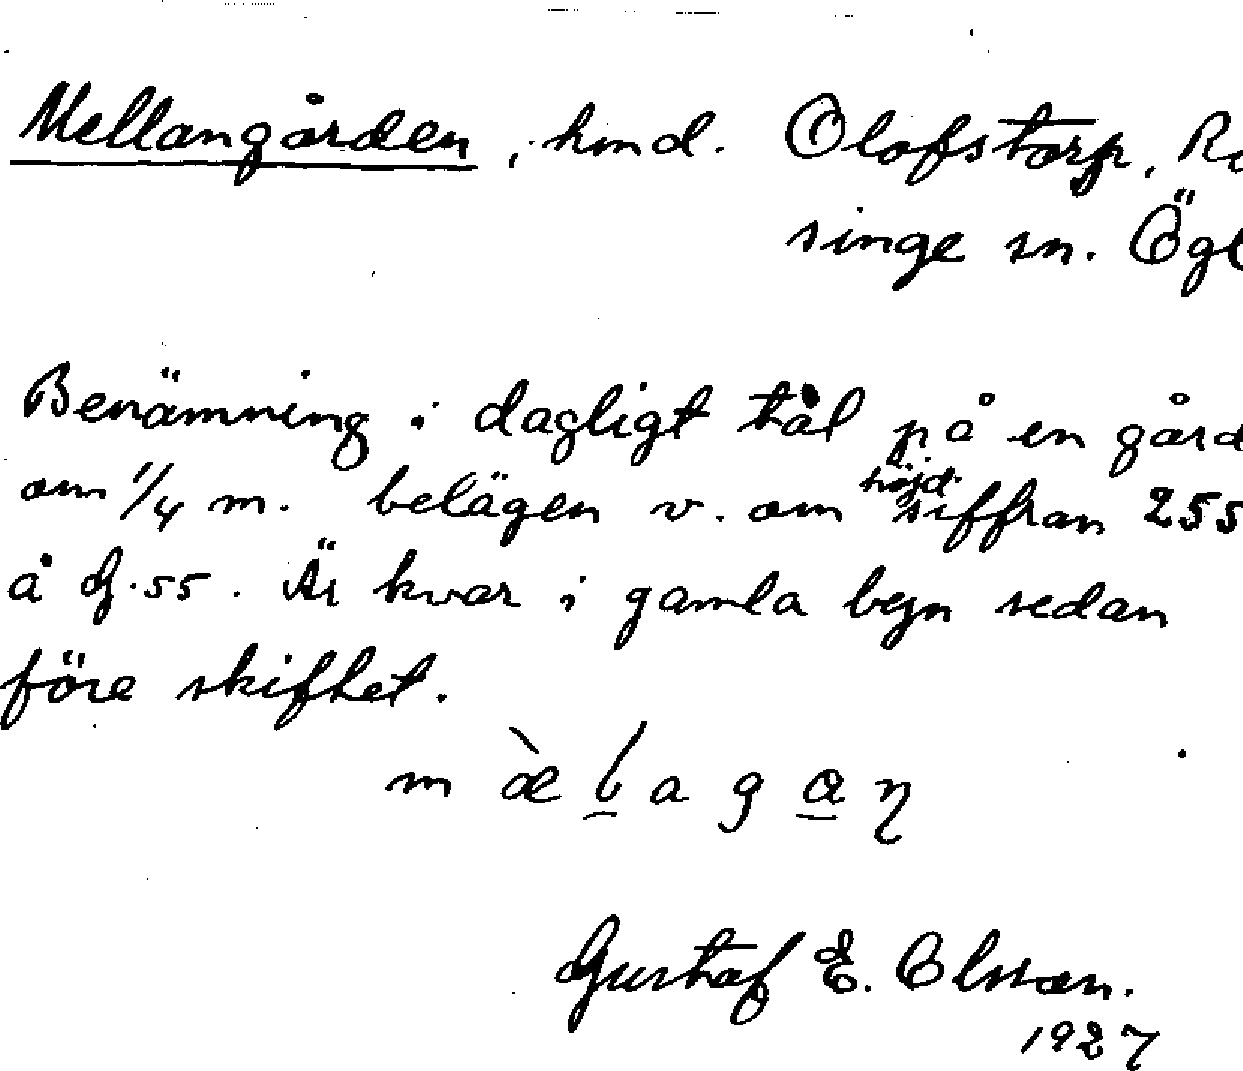 Mellangården, hmd. Olofstorp, R
singe sn. Ögl
Benämning i dagligt tal på en gård
om 1/4 m. belägen v. om höjd.siffran 255
å G.55. Är kvar i gamla byn sedan
före skiftet.
m æ̀ l a g a ŋ
Gustaf E. Olsson.
1927